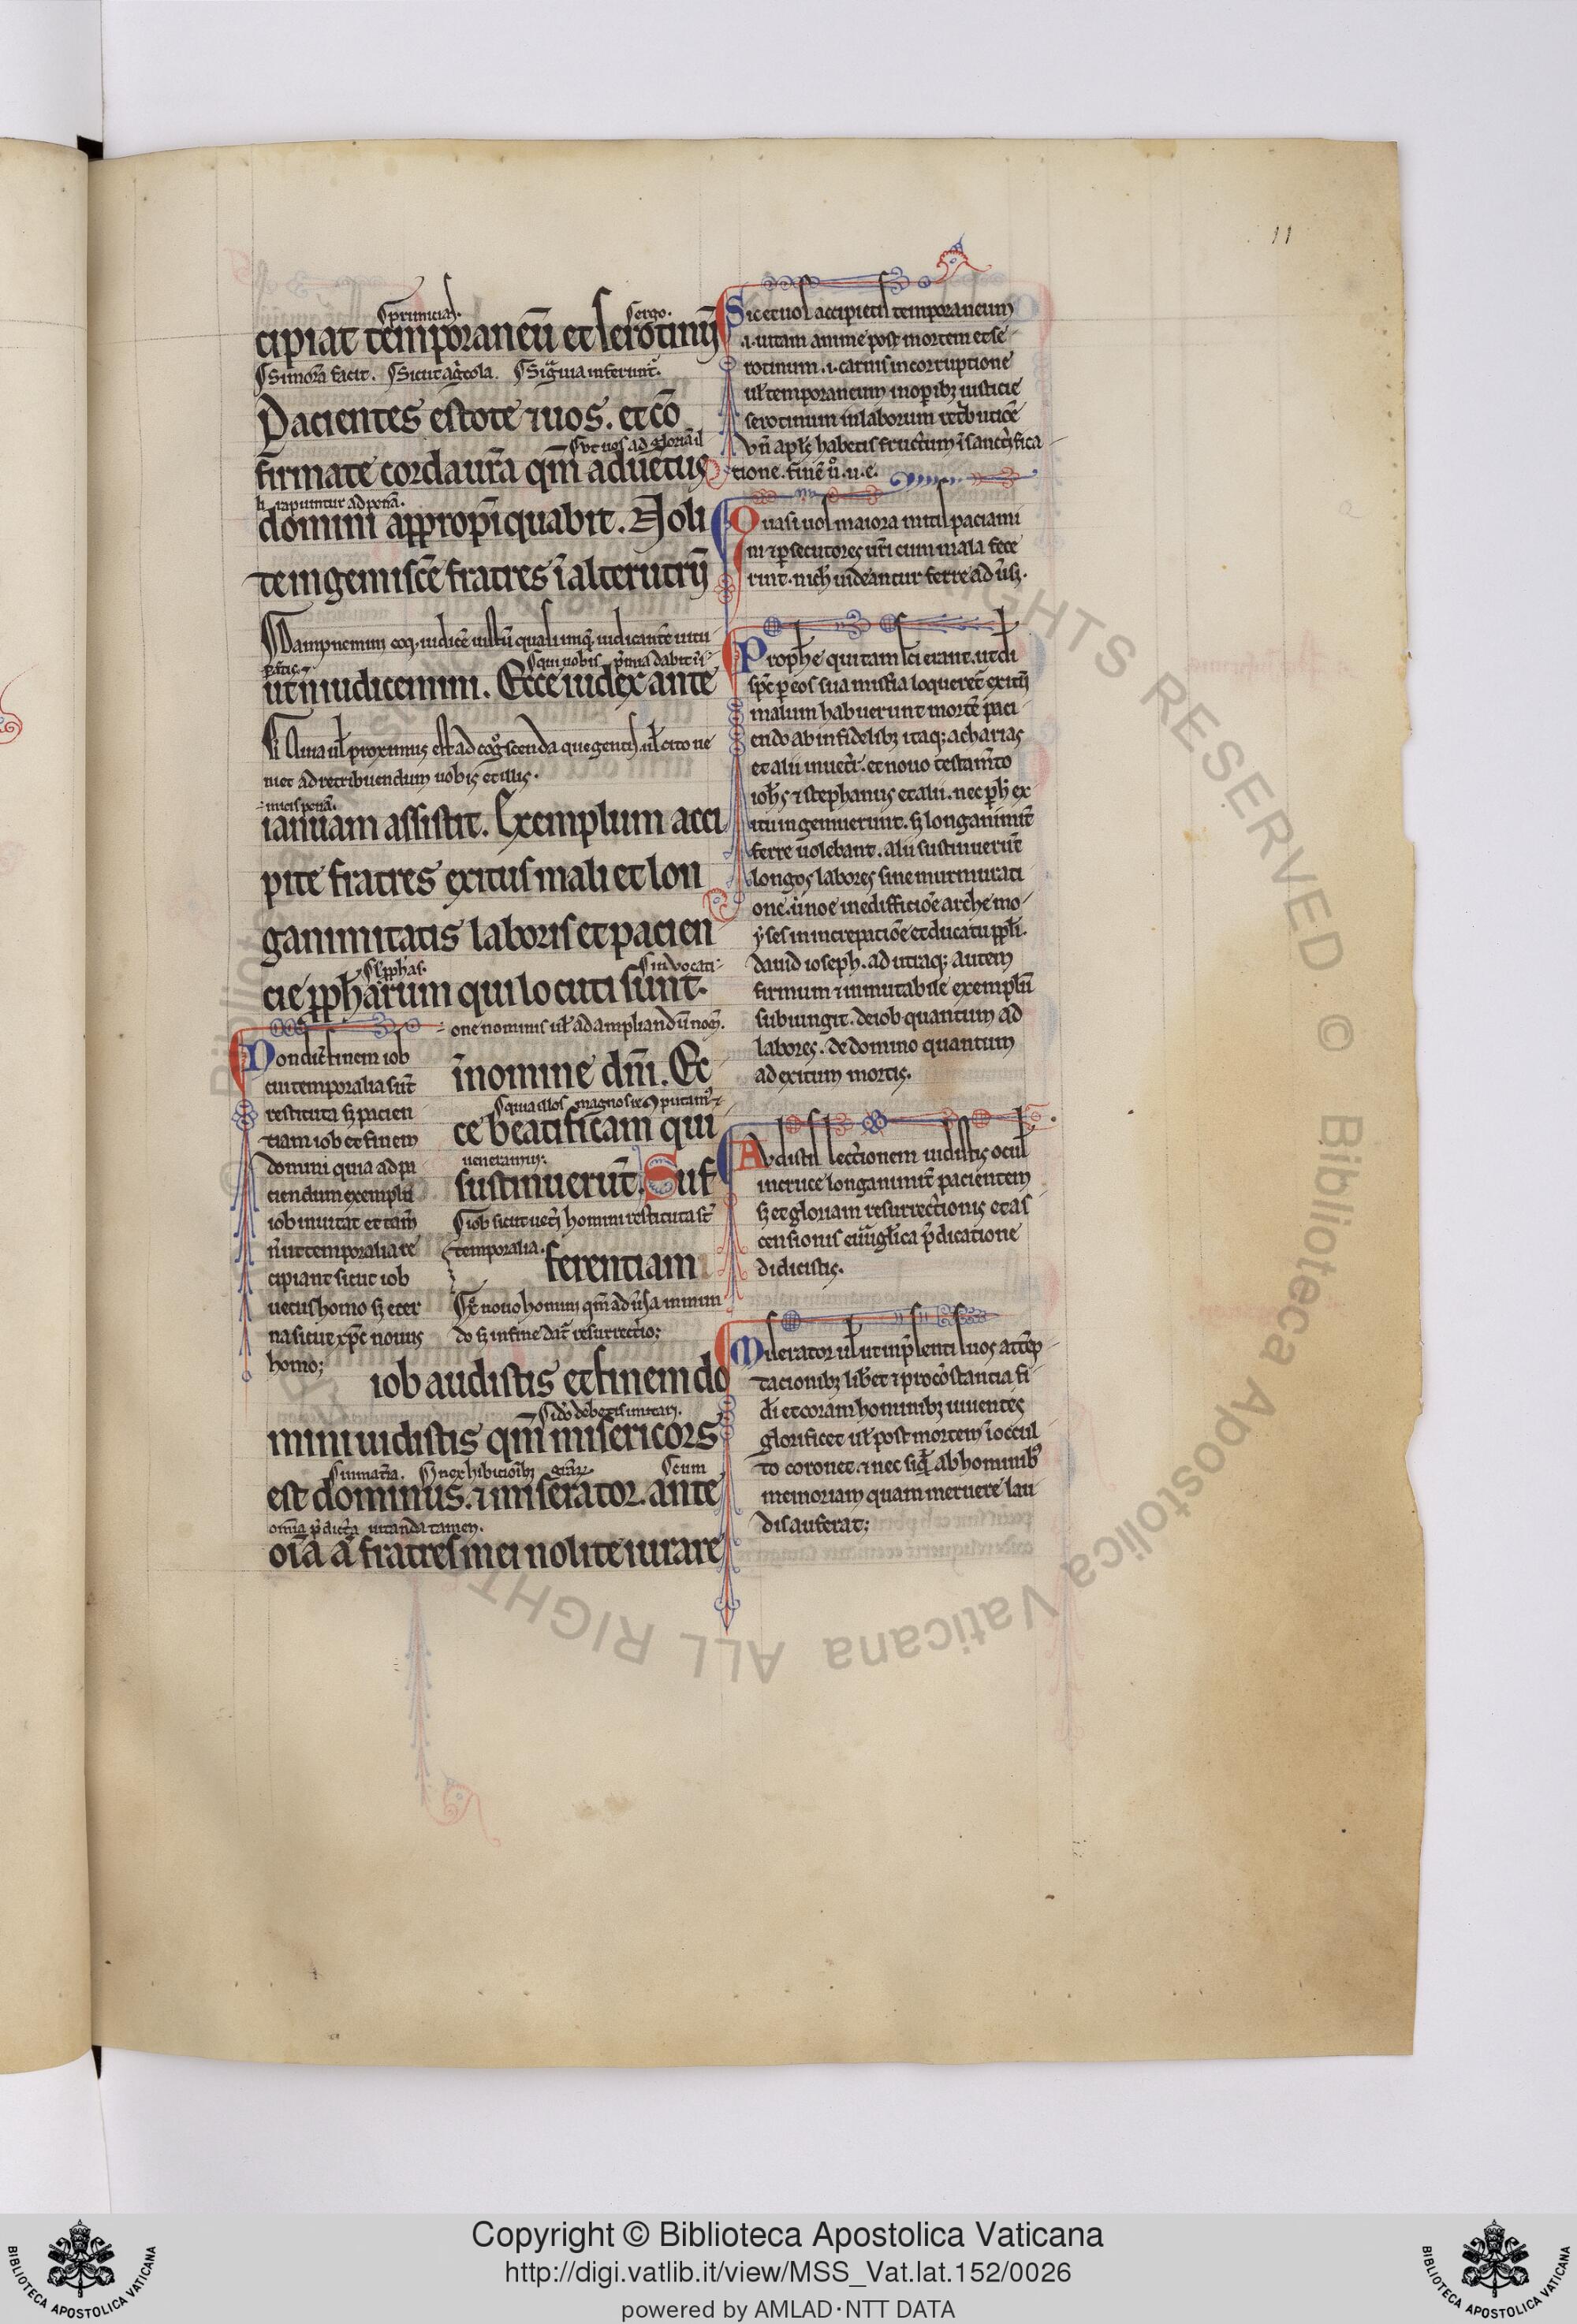 11
⸿primicias. ⸿ergo.
cipiat temporaneū et serotinū
⸿Si mora facit. ⸿Sicut agͥcola. ⸿Si gͣuia inferunt᷑.
Pacientes estote ⁊ uos. et cō
⸿Vt uos ad gloriā il
firmate corda ur̄a qm̄ aduētus
li rapiuntur ad penā.
domini appropīquabit. Noli
te ingemiscē fratres ī alterutrū
ut n̄ iudicemini. Ecce iudex ante
niet ad retribuendum uobis et illis.
ianuam assistit. Exemplum acci
pite fratres exitus mali et lon
ganimitatis laboris et pacien
⸿inuocati
cie pphārum qui locuti sunt.
one nominis ul̄ ad ampliandū nom̄.
ī nomine dm̄i. Ec
ce beatificam qui
ueneramur.
sustinuerūt. Suf
⸿iob sicut ueteri homini restituta st̄
temporalia.
ferentiam
do sꝫ in fine dat᷑ resurrectio;
iob audistis et finem do
mini uidistis qm̄ misericors
est dominus. ⁊ miserator. ante
omīa pͥdicta uitanda tamen.
oīa aͫ fratres mei nolite iurare
cui temporalia sūt
restituta sꝫ pacien
tiam iob et finem
domini quia ad pa
ciendum exemplū
iob inuitat et tam̄
n̄ ut temporalia re
cipiant sicut iob
uetus homo sꝫ eter
na sicut xp̄c nouus
homo;
Sic et uos accipietis temporaneum
.i. uitam anime post mortem et se
rotinum .i. carnis incorruptione
ul̄ temporaneum in oꝑibꝫ iusticie
serotinum in laborum retͥbutiōe
Vn̄ apl̄s habetis fructum ī sanctifica
tione. finē ů. u. e.
Quasi uos maiora iniusti paciami
ni ⁊ ꝑsecutores ur̄i cum mala fece
rint. nichil uideantur ferre aduͥsi.
Prophe qui tam sc̄i erant. ut dī
sp̄c ꝑ eos sua misteria loqueret᷑ exitū
malum habuerunt mortē paci
endo ab infidelibꝫ ut aꝗ; acharias
et alii in uet̄i. et nouo testam̄to
ioh̄s ⁊ stephanus et alii. nec ꝑ hͥ ex
itu ingemuerunt. sꝫ longanimit᷑
ferre uolebant. alii sustinuerūt
longos labores sine murmurati
one. ut noe in edifficiōe arche mo
yses in increpatiōe et ducatu ppl̄i.
dauid ioseph. ad utraqꝫ autem
firmum ⁊ inmutabile exemplū
subiungit. de iob quantum ad
labores. de domino quantum
ad exitum mortis.
Audistis lectionem uidistis oculis
in cruce longanimit᷑ pacientem
sꝫ et gloriam resurrectionis et as
censionis euͣgl̄ica pͥdicatione
didicistis.
tacionibꝫ libet ⁊ pro cōstancia fi
dei et coram hominibꝫ uiuentes
glorificet ul̄ post mortem ī occul
to coronet. ⁊ nec siqͣ ab hominibꝰ
memoriam quam meruere lau
dis auferat;
Copyright © Biblioteca Apostolica Vaticana
http://digi.vatlib.it/view/MSS_Vat.lat.152/0026
powered by AMLAD·NTT DATA
BIBLIOTECA APOSTOLICA VATICANA
BIBLIOTECA APOSTOLICA VATICANA
© Biblioteca Apostolica Vaticana ALL RIGHTS RESERVED